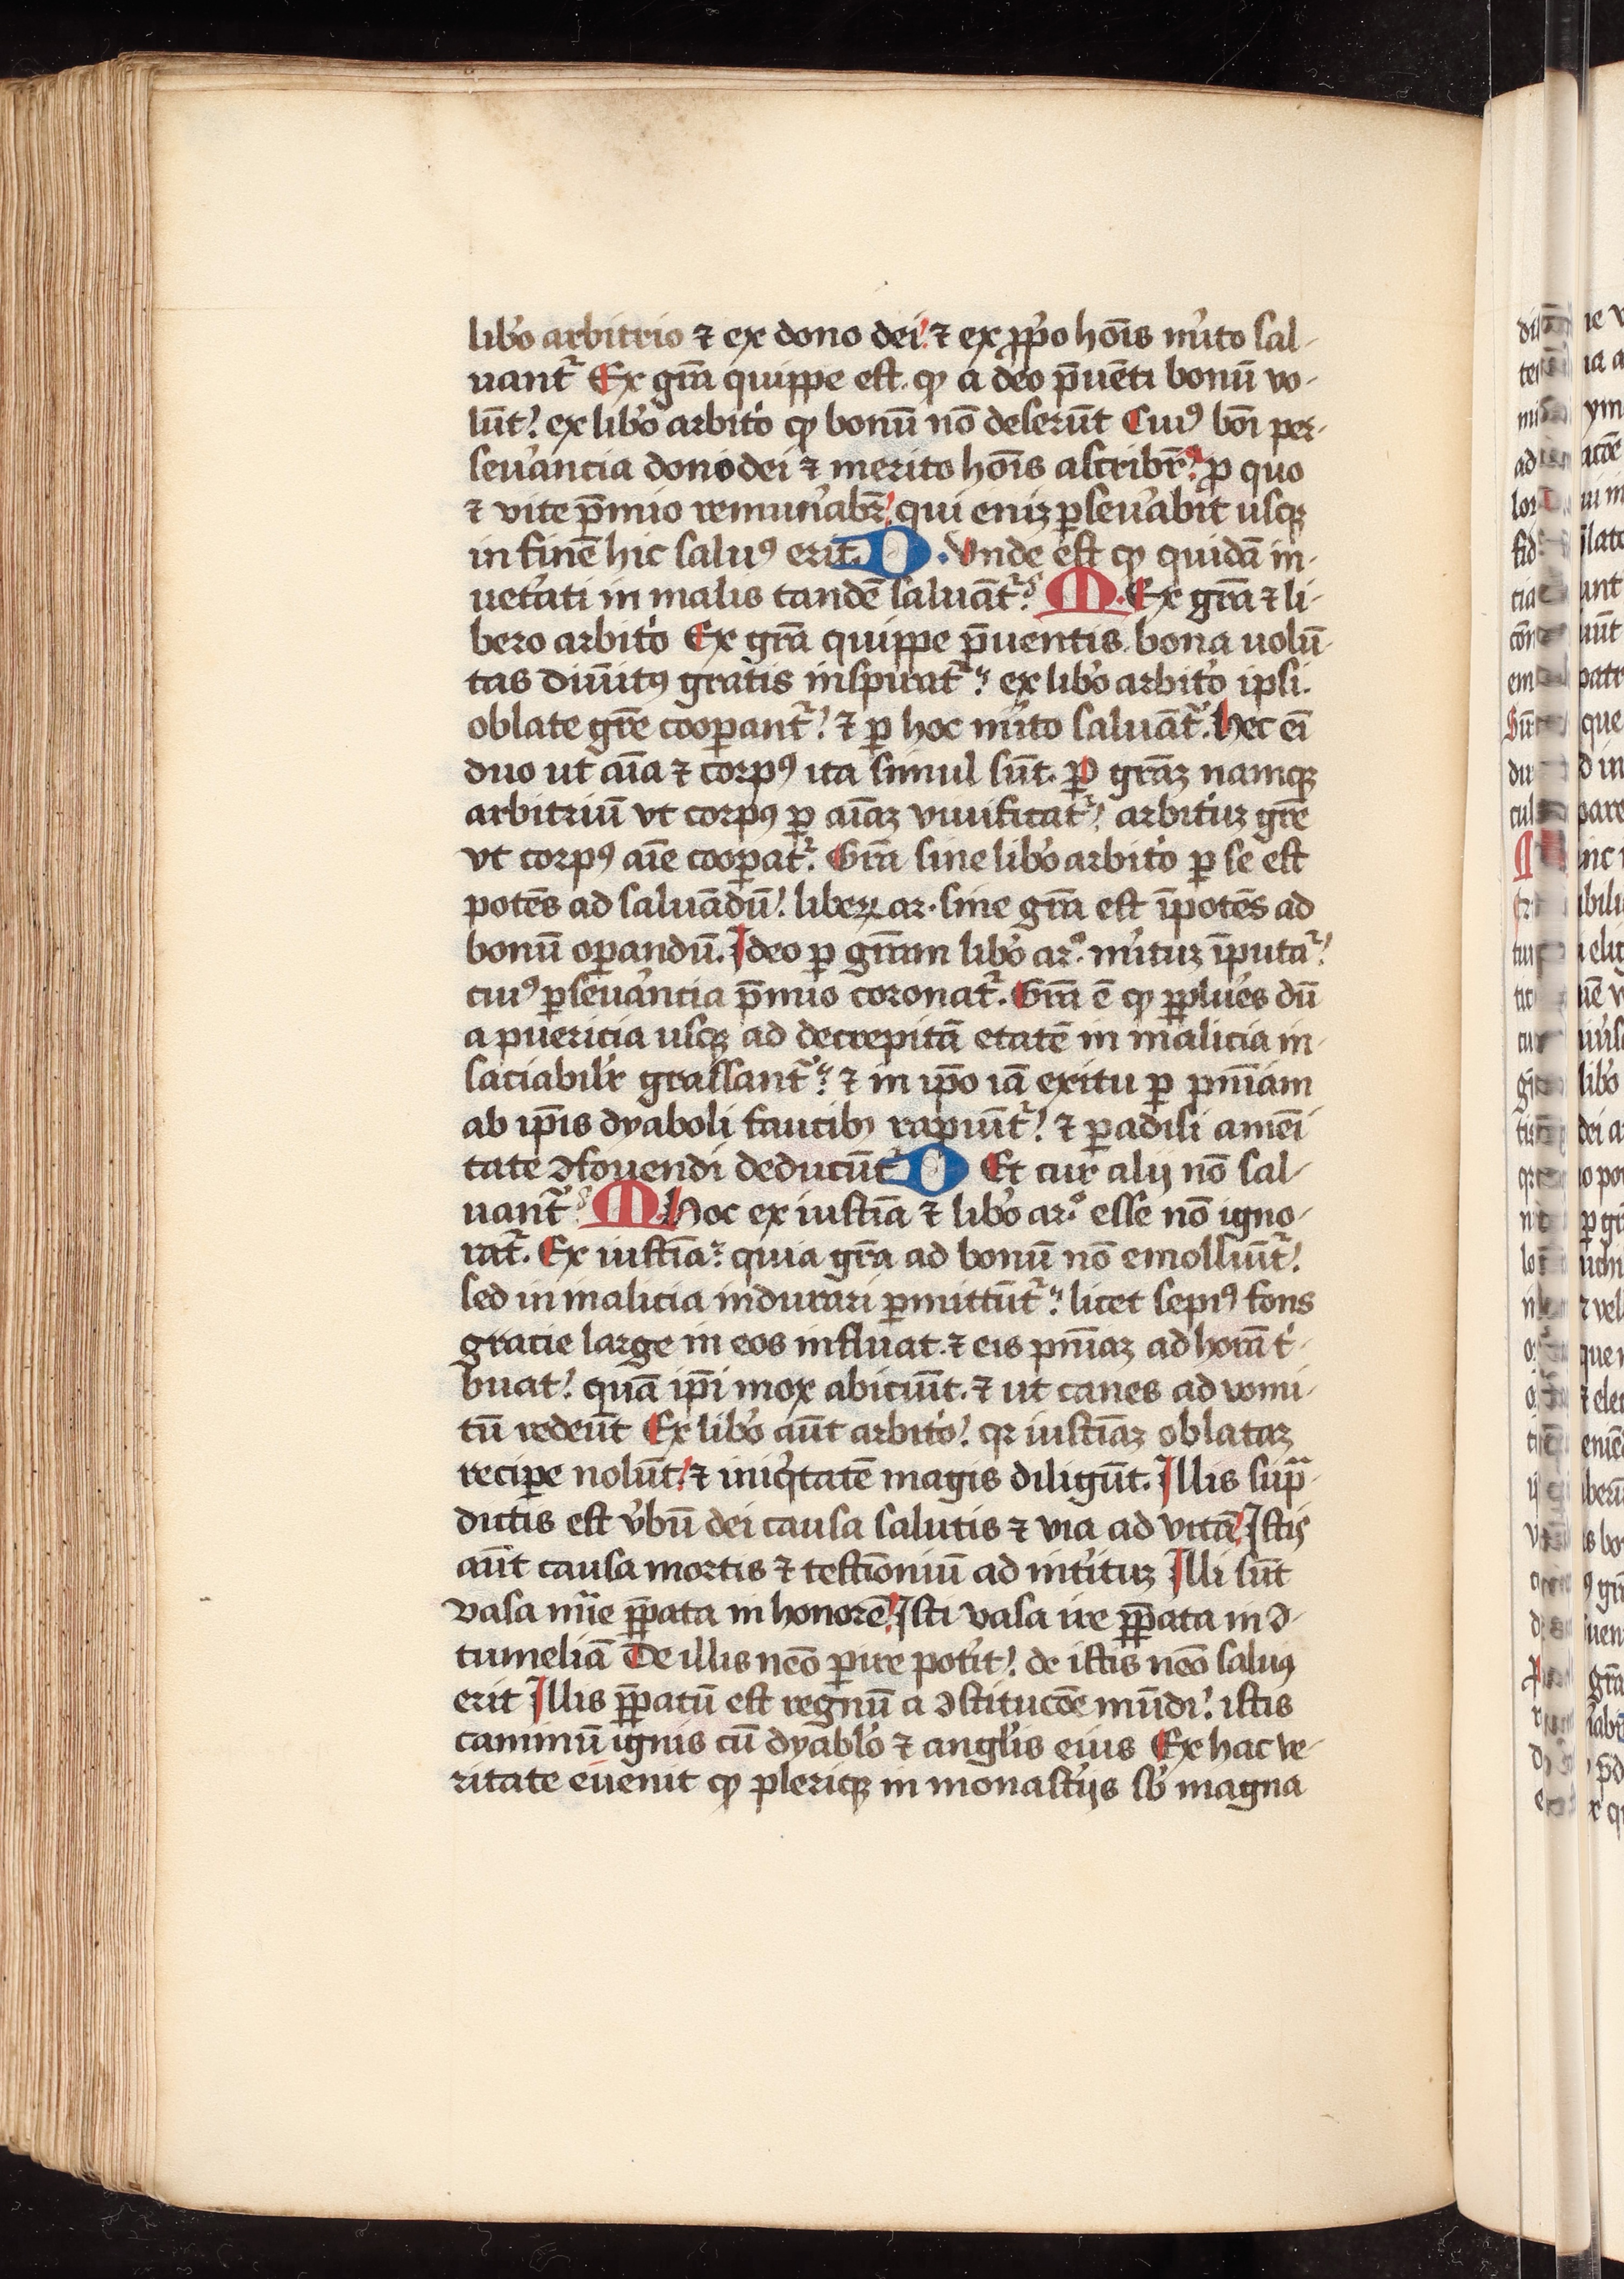 lib̾o arbitrio ⁊ ex dono dei ⁊ ex ꝓp̾o hoīs m̾ito sal-
uant᷑ Ex gr̄a quippe est ꝙ a deo p̄uēti bonū vo-
lūt ex lib̾o arbit̾o ꝙ bonū nō deserūt Cuiꝰ bōi per-
seu̾ancia dono dei ⁊ merito hoīs ascribit᷑ ꝓ quo
⁊ vite p̄mio remun̾abit᷑ qui eniꝫ ꝑseu̾abit usqꝫ
in finē hic saluꝰ erit. D. Vnde est ꝙ quidā in-
uet̾ati in malis tandē saluāt᷑ M. Ex gr̄a ⁊ li-
bero arbit̾o Ex gr̄a quippe p̄uentis bona uolū-
tas diuīitꝰ gratis inspirat᷑ ex lib̾o arbit̾o ipsi
oblate gr̄e cooꝑant᷑ ⁊ ꝑ hoc m̾ito saluāt᷑. hec eī
duo ut aīa ⁊ corpꝰ ita simul sūt. Ꝑ gr̄aꝫ namqꝫ
arbitriū vt corpꝰ ꝑ aīaꝫ viuificat᷑ arbit̾iuꝫ gr̄e
vt corpꝰ aīe cooꝑat᷑. Gr̄a sine lib̾o arbit̾o ꝑ se est
potēs ad saluādū liberꝝ ar. sine gr̄a est īpotēs ad
bonū oꝑandū. Ideo ꝑ gr̄am lib̾o ar.º m̾ituꝫ īputat᷑
cuiꝰ ꝑseu̾ancia p̄mio coronat᷑. Gr̄a ē ꝙ ꝑplures dū
a puericia usqꝫ ad decrepitā etatē in malicia in-
saciabil̾r grassant᷑ ⁊ in ip̄o iā exitu ꝑ pn̄iam
ab ip̄is dyaboli faucibꝫ rapiūt᷑ ⁊ ꝑadisi amēi
tate ꝯfouendi deducūt᷑ D Et cur alij nō sal-
uant᷑ M. Hoc ex iusticia ⁊ lib̾o ar.º esse nō igno-
rat᷑. Ex iusticia quia gr̄a ad bonū nō emolliūt᷑
sed in malicia indurari ꝑmittūt᷑ licet sepiꝰ fons
gracie large in eos influat ⁊ eis pn̄iaꝫ ad horā t̾-
buat quā ip̄i mox abiciūt ⁊ ut canes ad vomi-
tū redeūt Ex lib̾o aūt arbit̾o qꝛ iusticiaꝫ oblataꝫ
reciꝑe nolūt ⁊ iniq̾tatē magis diligūt. Illis sup̄-
dictis est v̾bū dei causa salutis ⁊ via ad vitā Istis
aūt causa mortis ⁊ testīoniū ad int̾ituꝫ Illi sūt
vasa mīe p̄parata in honorē Isti vasa ire p̄parata in ꝯ-
tumeliā De illis nēo ꝑire pot̾it de istis nēo saluꝰ
erit Illis p̄paratū est regnū a ꝯstitucōe mūdi istis
caminū ignis cū dyablo ⁊ angl̾is eius Ex hac ve-
ritate euenit ꝙ plerique in monast̾ijs sb̾ magna